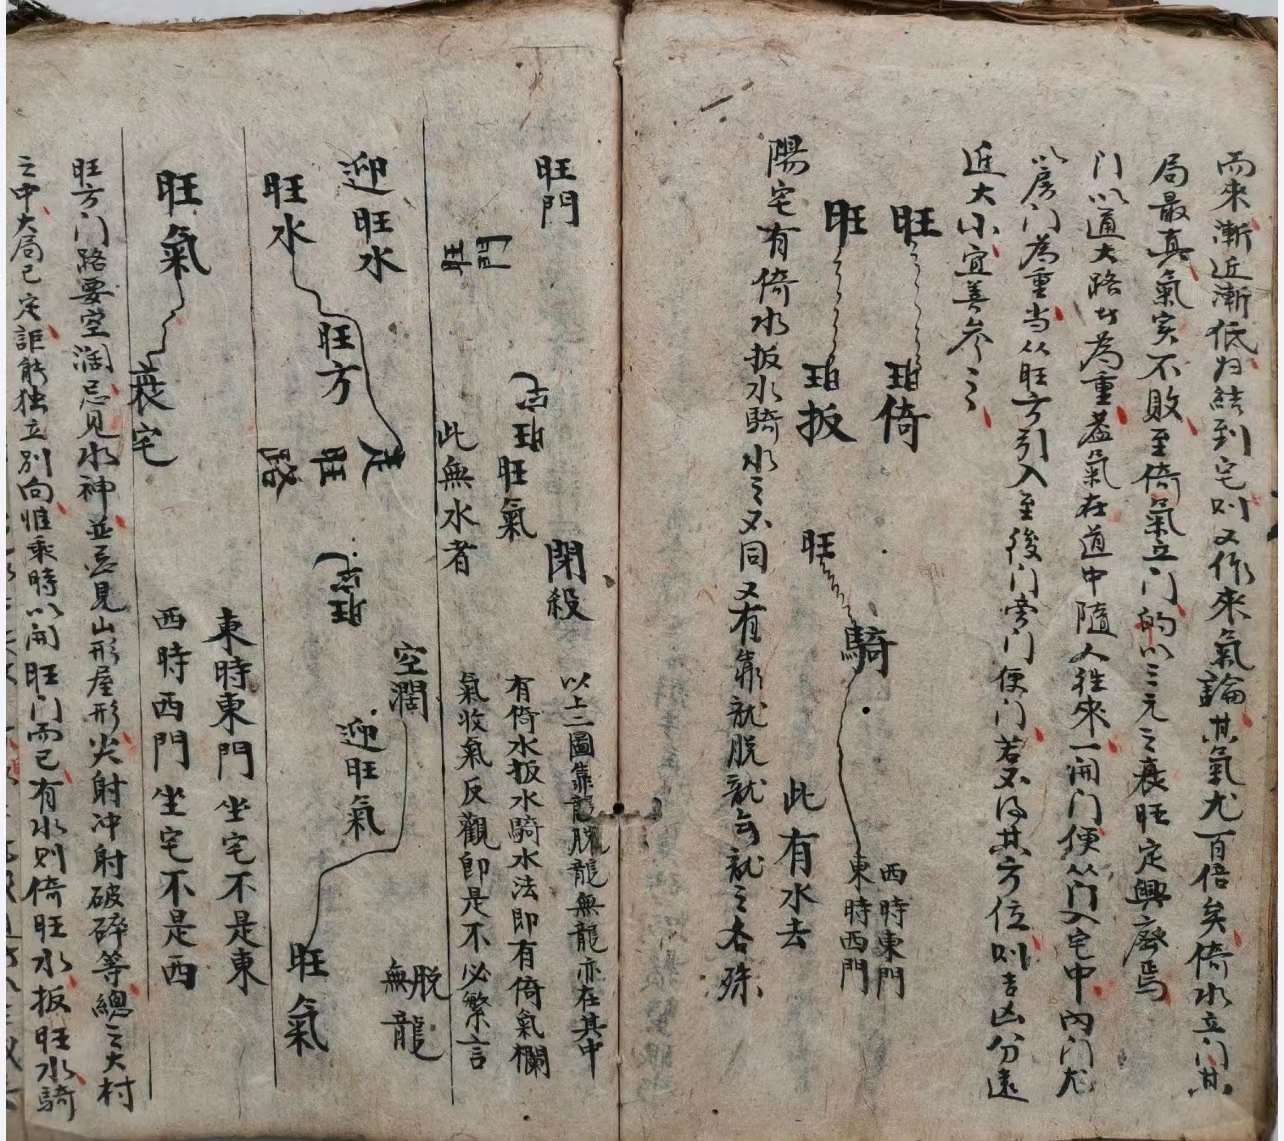 而來漸近漸低归結到宅则又作來氣論其氣尤百倍矣倚水立门其
局最真氣实不敗至倚氣立门的以三元之衰旺定興廢焉
门以通大路者為重蓋氣在道中隨人往來一開门便从门入宅中内门尤
以房门為重当从旺方引入至後门旁门便门若不得其方位则吉凶分遠
近大小宜善參之
旺 倚
旺 扳
旺 騎
西時東門
東時西門
此有水去
陽宅有倚水扳水騎水之不同又有靠就脱就之各殊
旺門
旺門
宅旺
旺氣
閉殺
此無水者
以上二圖靠龍脱龍無龍亦在其中
有倚水扳水騎水法即有倚氣欄
氣收氣反觀即是不必繁言
迎旺水
旺水
旺方
走旺路
宅旺
空濶
迎旺氣
旺氣
脱龍
無龍
東時東門坐宅不是東
西時西門坐宅不是西
旺氣
衰宅
旺方门路要空濶忌見水神並忌見山形屋形尖射冲射破碎等總之大村
之中大局已定詎能独立别向惟乘時以開旺门而已有水则倚旺水扳旺水騎